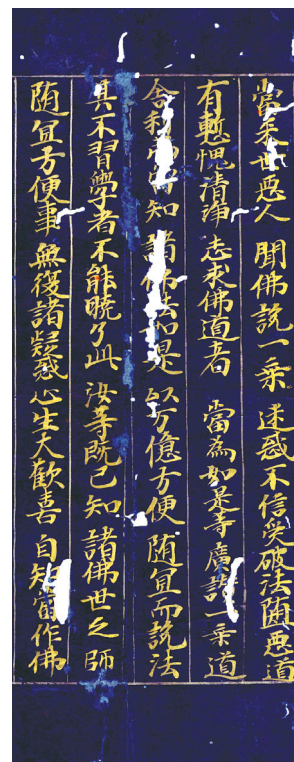 當来世惡人 聞佛說一乗 迷惑不信受 破法堕惡道
有慙愧清淨 志求佛道者 當為如是等 廣讃一乗道
舍利弗當知 諸佛法如是 以万億方便 随冝而說法
其不習學者 不能曉了此 汝等既已知 諸佛世之師
随冝方便事 無復諸疑惑 心生大歡喜 自知當作佛